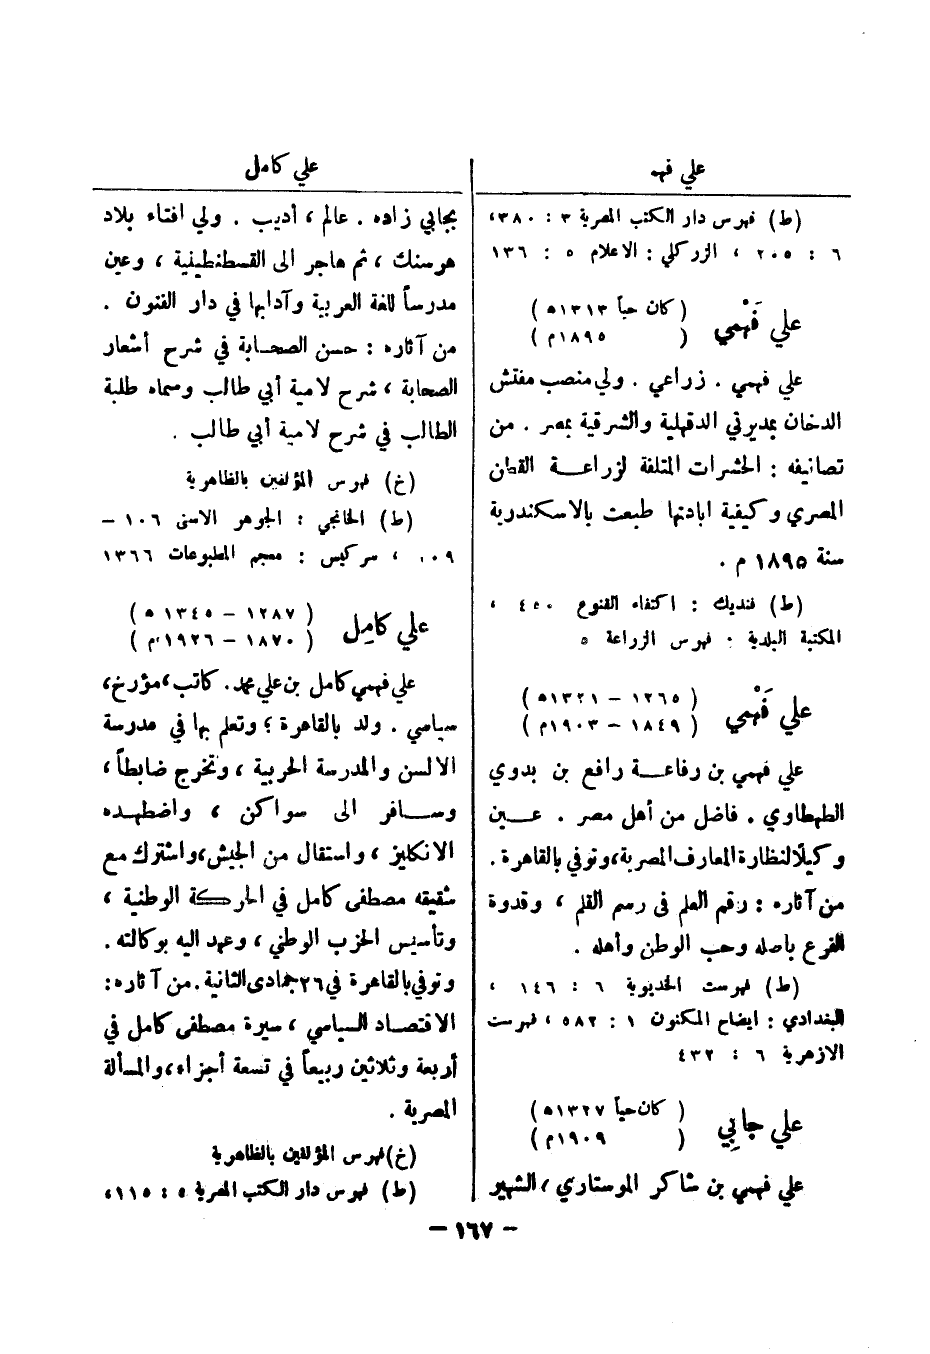 علي فهمـ
(ط) فهرس دار الكتب المصرية ٣ : ٣٨٠،
٦ : ٢٠٥ ، الزركلي : الاعلام ٥ : ١٣٦
علي فَهْمي ( كان حياً ١٣١٣ ه )
( ١٨٩٥ م )
علي فهمي . زراعي . ولي منصب مفتش
الدخان بمديرتي الدقهلية والشرقية بمصر . من
تصانيفه : الحشرات المتلفة لزراعـة القطن
المصري وكيفية ابادتها طبعت بالاسكندرية
سنة ١٨٩٥ م .
(ط) فنديك : اكتفاء القنوع ٤٥٠ ،
المكتبة البلدية : فهرس الزراعة ٥
علي فَهْمي ( ١٢٦٥ - ١٣٢١ ه )
( ١٨٤٩ - ١٩٠٣ م )
علي فهمي بن رفاعـة رافع بن بدوي
الطهطاوي . فاضل من أهل مصر . عـين
وكيلاً لنظارة المعارف المصرية، وتوفي بالقاهرة .
من آثاره : رقم العلم في رسم القلم ، وقدوة
الفرع باصله وحب الوطن وأهله .
(ط) فهرست الخديوية ٦ : ١٤٦ ،
البغدادي : ايضاح المكنون ١ : ٥٨٢ ، فهرست
الازهرية ٦ : ٤٣٢
علي جابي ( كان حياً ١٣٢٧ ه )
( ١٩٠٩ م )
علي فهمي بن شاكر الموستاري ، الشهير
علي كامل
بجابي زاده . عالم ، أديب . ولي افتاء بلاد
هرسنك ، ثم هاجر الى القسطنطينية ، وعين
مدرساً للغة العربية وآدابها في دار الفنون .
من آثاره : حسن الصحـابة في شرح أشعار
الصحابة ، شرح لامية أبي طالب وسماه طلبة
الطالب في شرح لامية أبي طالب .
(خ) فهرس المؤلفين بالظاهرية
(ط) الخانجي : الجوهر الاسنى ١٠٦ -
١٠٩ ، سركيس : معجم المطبوعات ١٣٦٦
علي كامِل ( ١٢٨٧ - ١٣٤٥ ه )
( ١٨٧٠ - ١٩٢٦ م )
علي فهمي كامل بن علي محمد. كاتب، مؤرخ،
سياسي . ولد بالقاهرة ؛ وتعلم بها في مدرسة
الالسن والمدرسة الحربية ، وتخرج ضابطاً ،
وسـافر الى سواكن ، واضطهـده
الانكليز ، واستقال من الجيش، واشترك مع
شقيقه مصطفى كامل في الحركة الوطنية ،
وتأسيس الحزب الوطني ، وعهد اليه بوكالته .
وتوفي بالقاهرة في ٢٦ جمادى الثانية . من آثاره :
الاقتصاد السياسي ، سيرة مصطفى كامل في
أربعة وثلاثين ربيعاً في تسعة أجزاء، والمسألة
المصرية .
(خ) فهرس المؤلفين بالظاهرية
(ط) فهرس دار الكتب المصرية ٥ : ١١٥،
- ١٦٧ -